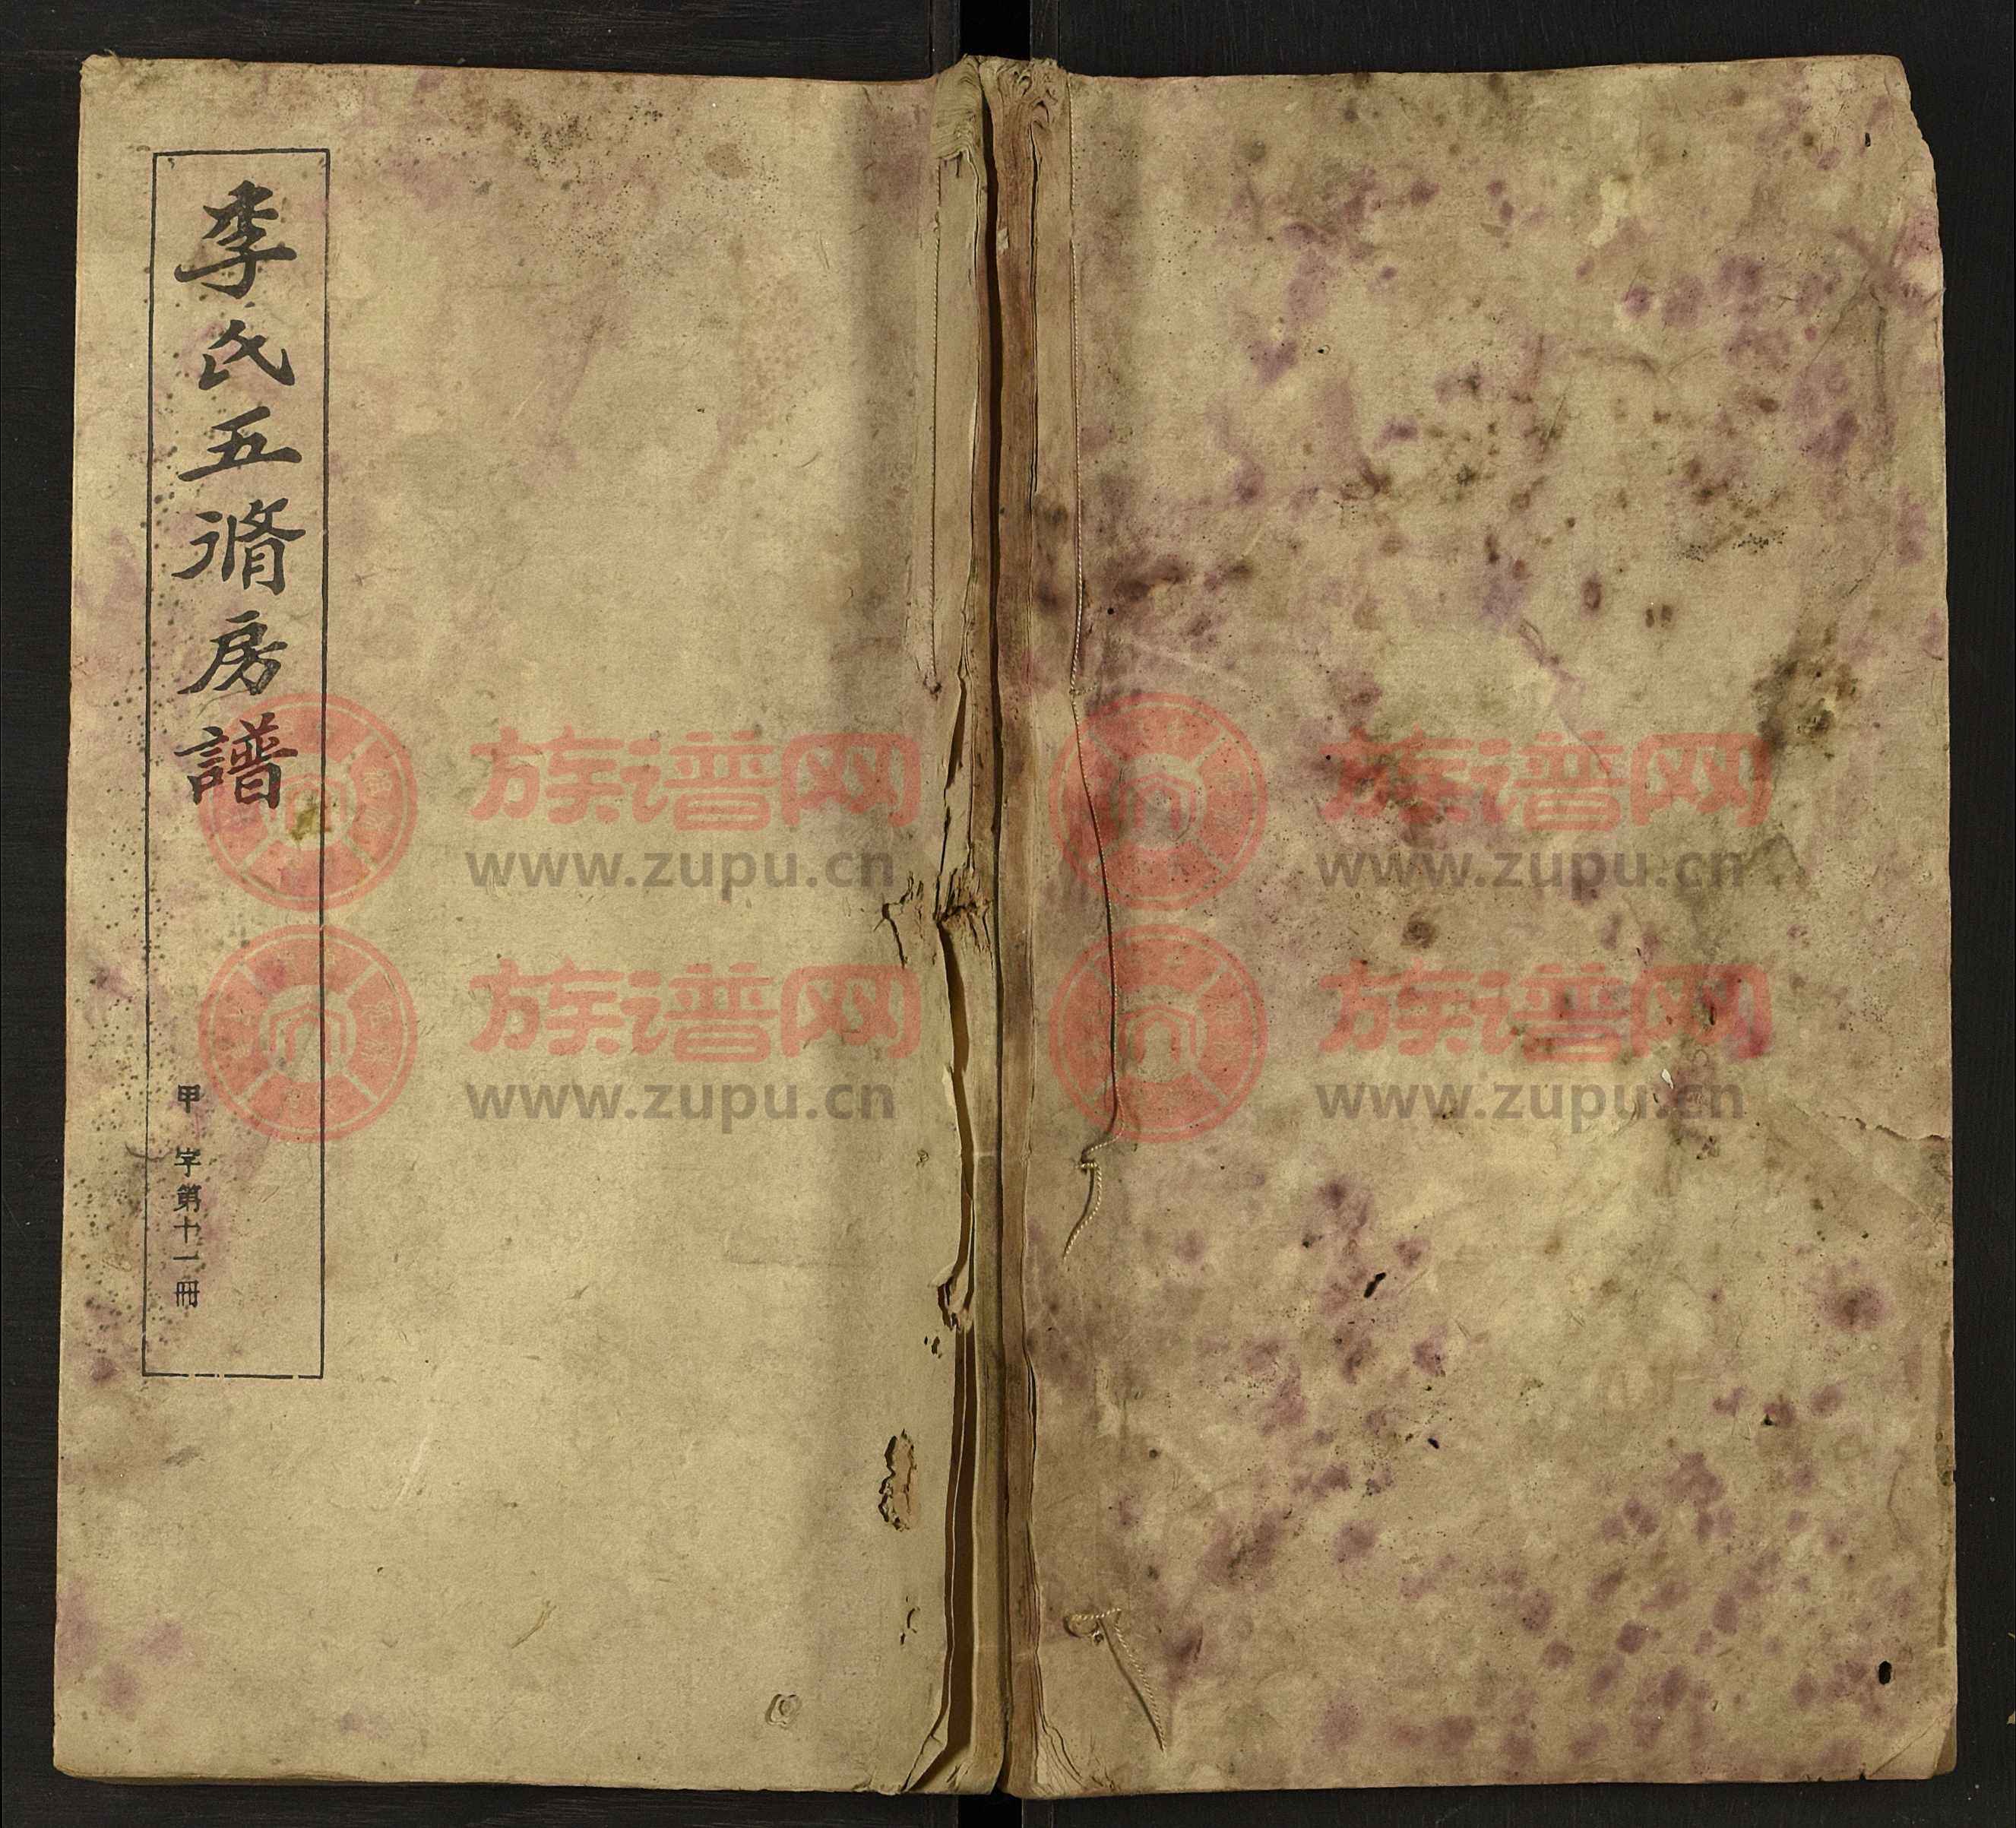 李氏五脩房譜
甲字第十一冊
族谱网
www.zupu.cn
族谱网
www.zupu.cn
族谱网
www.zupu.cn
族谱网
www.zupu.cn